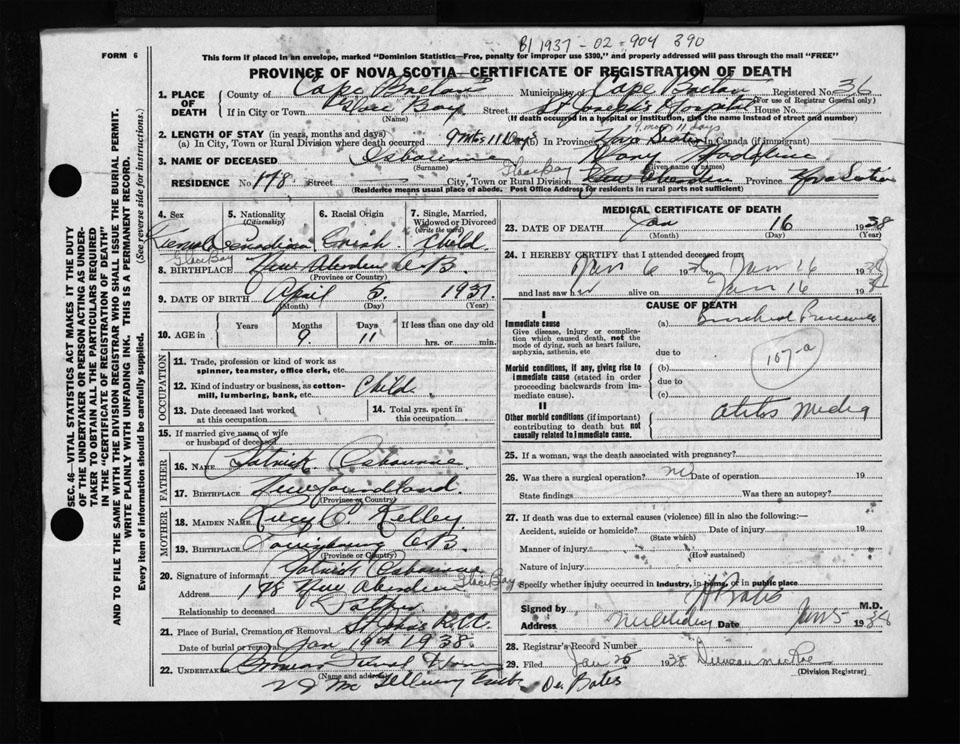 B1 1937 - 02 - 904 390
FORM 6
This form if placed in an envelope, marked "Dominion Statistics—Free, penalty for improper use $300," and properly addressed will pass through the mail "FREE"
PROVINCE OF NOVA SCOTIA—CERTIFICATE OF REGISTRATION OF DEATH
SEC. 46—VITAL STATISTICS ACT MAKES IT THE DUTY
OF THE UNDERTAKER OR PERSON ACTING AS UNDER-
TAKER TO OBTAIN ALL THE PARTICULARS REQUIRED
IN THE "CERTIFICATE OF REGISTRATION OF DEATH"
AND TO FILE THE SAME WITH THE DIVISION REGISTRAR WHO SHALL ISSUE THE BURIAL PERMIT.
WRITE PLAINLY WITH UNFADING INK. THIS IS A PERMANENT RECORD.
Every item of information should be carefully supplied. (See reverse side for instructions.)
1. PLACE OF DEATH
County of Cape Breton Municipality of Cape Breton Registered No. 36
(For use of Registrar General only)
If in City or Town Glace Bay Street St Joseph's Hospital House No.
(Name) (If death occurred in a hospital or institution, give the name instead of street and number)
2. LENGTH OF STAY (in years, months and days) 9 mos 11 days
(a) In City, Town or Rural Division where death occurred 9 Mos 11 Days (b) In Province Nova Scotia In Canada (if immigrant)
3. NAME OF DECEASED Osbourne Mary
(Surname) (Given name or names)
Glace Bay
RESIDENCE No. 178 Street City, Town or Rural Division New Aberdeen Province Nova Scotia
(Residence means usual place of abode. Post Office Address for residents in rural parts not sufficient)
4. Sex 5. Nationality (Citizenship) 6. Racial Origin 7. Single, Married, Widowed or Divorced (write the word)
Female Canadian Irish Child
Glace Bay
8. BIRTHPLACE New Aberdeen C.B.
(Province or Country)
9. DATE OF BIRTH April 5 1937
(Month) (Day) (Year)
10. AGE in Years Months Days If less than one day old
9 11 hrs. or min.
OCCUPATION
11. Trade, profession or kind of work as spinner, teamster, office clerk, etc.
12. Kind of industry or business, as cotton-mill, lumbering, bank, etc. Child
13. Date deceased last worked at this occupation 14. Total yrs. spent in this occupation
15. If married give name of wife or husband of deceased
FATHER
16. NAME Patrick Osbourne
17. BIRTHPLACE Newfoundland
(Province or Country)
MOTHER
18. MAIDEN NAME Kelley
19. BIRTHPLACE C.B.
(Province or Country)
20. Signature of informant Patrick Osbourne
Address 178 New Aberdeen Glace Bay
Relationship to deceased Father
21. Place of Burial, Cremation or Removal
Date of burial or removal Jan 19th 1938
22. UNDERTAKER
MEDICAL CERTIFICATE OF DEATH
23. DATE OF DEATH Jan 16 1938
(Month) (Day) (Year)
24. I HEREBY CERTIFY that I attended deceased from
Jan 6 1938 to Jan 16 1938
and last saw her alive on Jan 16 1938
CAUSE OF DEATH
I
Immediate cause
Give disease, injury or complication which caused death, not the mode of dying, such as heart failure, asphyxia, asthenia, etc
(a) Bronchial Pneumonia
due to
107-a
Morbid conditions, if any, giving rise to immediate cause (stated in order proceeding backwards from immediate cause).
(b)
due to
(c)
II
Other morbid conditions (if important) contributing to death but not causally related to immediate cause.
Otitis Media
25. If a woman, was the death associated with pregnancy?
26. Was there a surgical operation? no Date of operation 19
State findings Was there an autopsy?
27. If death was due to external causes (violence) fill in also the following:—
Accident, suicide or homicide? Date of injury 19
(State which)
Manner of injury
(How sustained)
Nature of injury
Specify whether injury occurred in industry, in home, or in public place
Signed by Bates M.D.
Address Date 1938
28. Registrar's Record Number
29. Filed Jan 20 1938 Duncan MacRae
(Division Registrar)
Dr. Bates